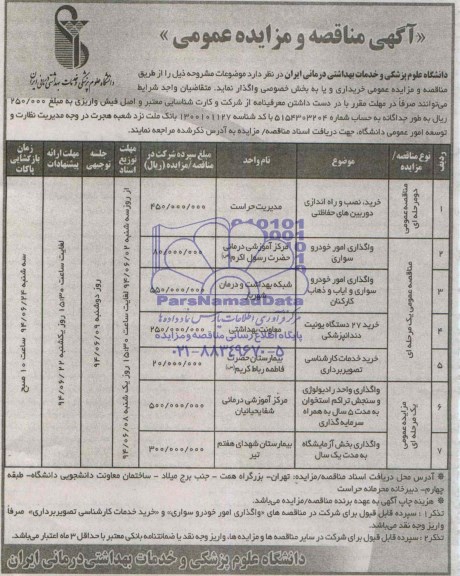 «آگهی مناقصه و مزایده عمومی»
دانشگاه علوم پزشکی و خدمات بهداشتی درمانی ایران
دانشگاه علوم پزشکی و خدمات بهداشتی درمانی ایران در نظر دارد موضوعات مشروحه ذیل را از طریق
مناقصه و مزایده عمومی خریداری و یا به بخش خصوصی واگذار نماید. متقاضیان واجد شرایط
می‌توانند صرفاً در مهلت مقرر با در دست داشتن معرفینامه از شرکت و کارت شناسایی معتبر و اصل فیش واریزی به مبلغ ۲۵۰/۰۰۰
ریال به طور جداگانه به حساب شماره ۵۱۵۴۳۰۳۲۰۴ با کد شناسه ۱۳۰۰۱۰۱۱۲۷ بانک ملت نزد شعبه هجرت در وجه مدیریت نظارت و
توسعه امور عمومی دانشگاه، جهت دریافت اسناد مناقصه/ مزایده به آدرس ذکرشده مراجعه نمایند.
ردیف
نوع مناقصه/ مزایده
موضوع
نام واحد
مبلغ سپرده شرکت در مناقصه/مزایده (ریال)
مهلت توزیع اسناد
جلسه توجیهی
مهلت ارائه پیشنهادات
زمان بازگشایی پاکات
۱
مناقصه عمومی دو مرحله ای
خرید، نصب و راه اندازی دوربین های حفاظتی
مدیریت حراست
۲۵۰/۰۰۰/۰۰۰
۲
مناقصه عمومی یک مرحله ای
واگذاری امور خودرو سواری
مرکز آموزشی درمانی حضرت رسول اکرم (ص)
۸۰/۰۰۰/۰۰۰
۳
واگذاری امور خودرو سواری و ایاب و ذهاب کارکنان
شبکه بهداشت و درمان شهریار
۵۵۰/۰۰۰/۰۰۰
۴
خرید ۲۷ دستگاه یونیت دندانپزشکی
معاونت بهداشتی
۲۵۰/۰۰۰/۰۰۰
۵
خرید خدمات کارشناسی تصویربرداری
بیمارستان حضرت فاطمه رباط کریم
۲۰/۰۰۰/۰۰۰
۶
مزایده عمومی یک مرحله ای
واگذاری واحد رادیولوژی و سنجش تراکم استخوان به مدت ۵ سال به همراه سرمایه گذاری
مرکز آموزشی درمانی شفا یحیائیان
۵۰۰/۰۰۰/۰۰۰
۷
واگذاری بخش آزمایشگاه به مدت یک سال
بیمارستان شهدای هفتم تیر
۳۰۰/۰۰۰/۰۰۰
از روز سه شنبه ۹۴/۰۶/۰۲ لغایت ساعت ۱۵:۳۰ روز یک شنبه ۹۴/۰۶/۰۸
روز دوشنبه ۹۴/۰۶/۰۹
لغایت ساعت ۱۵:۳۰ روز یکشنبه ۹۴/۰۶/۲۲
سه شنبه ۹۴/۰۶/۲۴ ساعت ۱۰ صبح
ParsNamadData
مرکز فرآوری اطلاعات پارس نماد داده ها
پایگاه اطلاع رسانی مناقصه و مزایده
۰۲۱-۸۸۳۴۹۶۷۰-۵
آدرس محل دریافت اسناد مناقصه/مزایده: تهران- بزرگراه همت - جنب برج میلاد - ساختمان معاونت دانشجویی دانشگاه- طبقه
چهارم- دبیرخانه محرمانه حراست
هزینه چاپ آگهی به عهده برنده مناقصه/مزایده می‌باشد.
تذکر۱: سپرده قابل قبول برای شرکت در مناقصه های «واگذاری امور خودرو سواری» و «خرید خدمات کارشناسی تصویربرداری» صرفاً
واریز وجه نقد می‌باشد.
تذکر۲: سپرده قابل قبول برای شرکت در سایر مناقصه ها و مزایده ها، واریز وجه نقد یا ضمانتنامه بانکی معتبر با حداقل ۳ ماه اعتبار می‌باشد.
دانشگاه علوم پزشکی و خدمات بهداشتی درمانی ایران